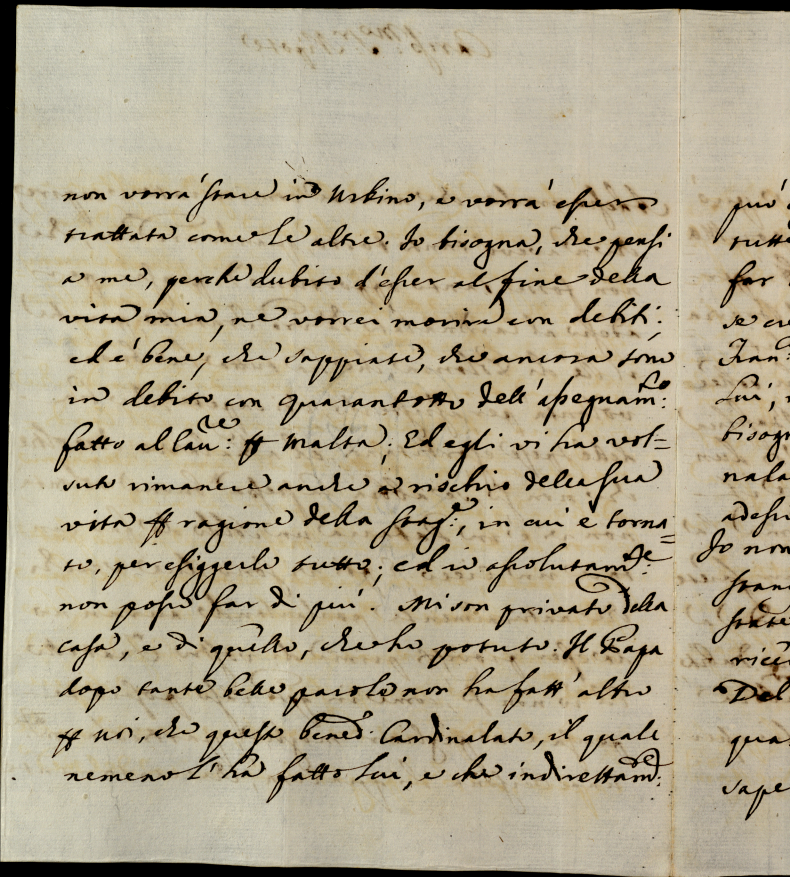 non vorrà stare in Urbino, e vorrà esser
trattata come le altre. Io bisogna, che pensi
a me, perche dubito d'esser al fine della
vita mia, ne vorrei morire con debiti:
ed è bene, che sappiate, che ancora sono
in debito con quarantotto dell'assegnam:to
fatto al Cau:re Malta; Ed egli vi ha vol=
suto rimanere anche a rischio della sua
vita ragione della stag:e, in cui è torna=
to, per esiggerli tutto; ed io assolutam:te
non posso far di più. Mi son privato della
casa, e di quello, che ho potuto. Il Papa
dopo tante belle parole non ha fatt'altro
noi, che questo bened:o Cardinalato, il quale
nemeno l'ha fatto lui, e che indirettam:te
può
tutte
far
se
Fran:
Lui,
bisogn
nala
Io non
stan
Del
qua
sape